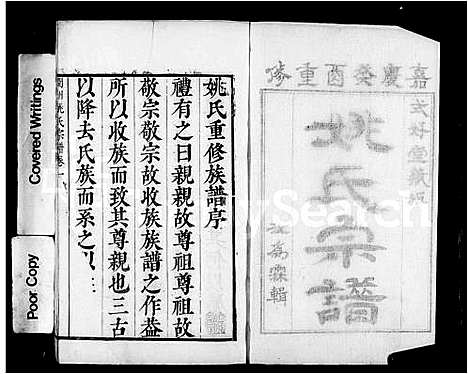 嘉慶癸酉重修
姚氏宗譜
姚氏重修族譜序
禮有之曰親親故尊祖尊祖故
敬宗敬宗故收族族譜之作蓋
所以收族而致其尊親也三古
以降去氏族而系之以
Covered Writings
Poor Copy
Search